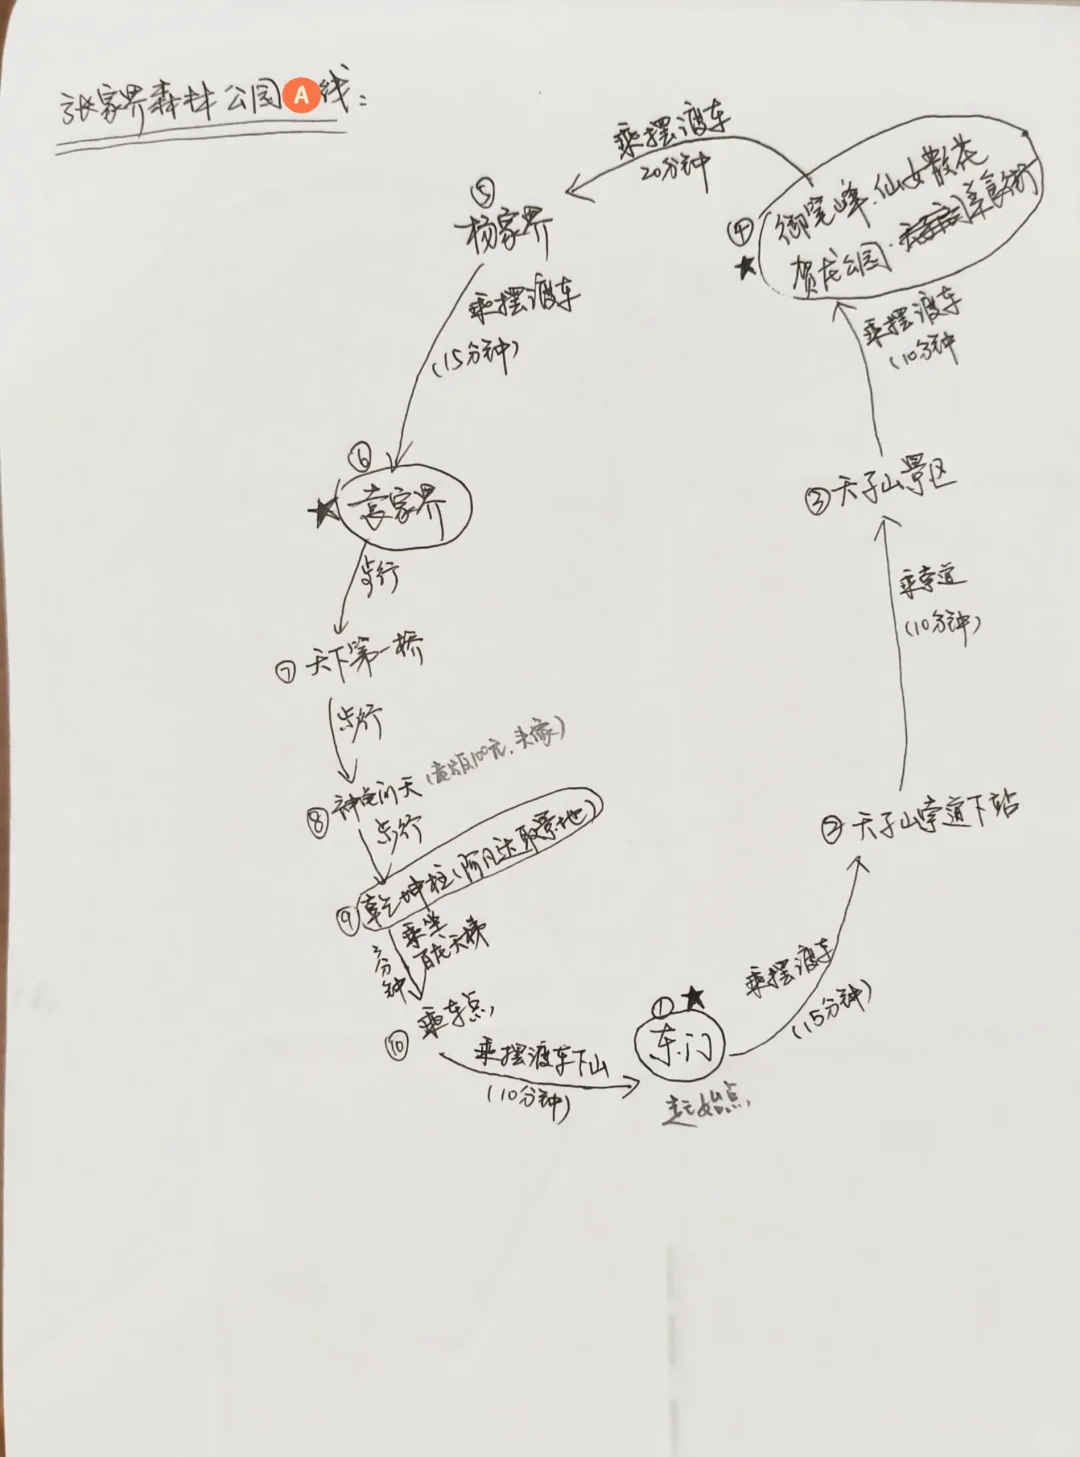 张家界森林公园A线:
①
东门
起始点
乘摆渡车
(15分钟)
②天子山索道下站
乘索道
(10分钟)
③天子山景区
乘摆渡车
(10分钟
④
御笔峰.仙女散花
贺龙公园.
美食街
乘摆渡车
20分钟
⑤
杨家界
乘摆渡车
(15分钟)
⑥
袁家界
步行
⑦天下第一桥
步行
⑧神龟问天
100元.头像)
步行
⑨乾坤柱(阿凡达取景地)
乘坐
百龙天梯
分钟
⑩乘车点
乘摆渡车下山
(10分钟)